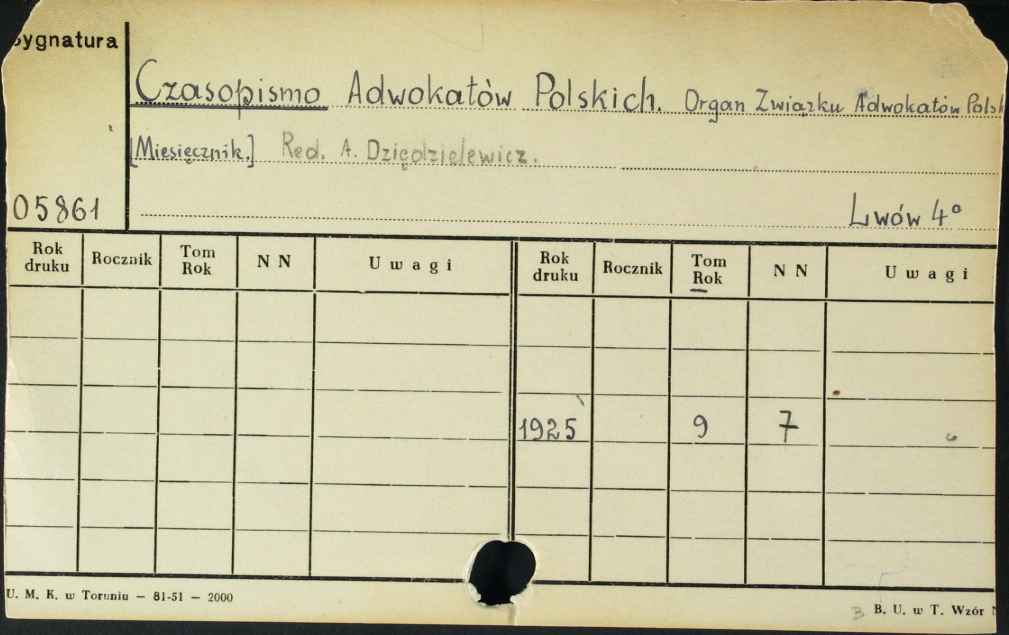 Sygnatura
Czasopismo Adwokatów Polskich. Organ Związku Adwokatów Polsk
[Miesięcznik.] Red. A. Dziędzielewicz.
05861
Lwów 4°
Rok druku Rocznik Tom Rok N N Uwagi Rok druku Rocznik Tom Rok N N Uwagi
1925 9 7
U. M. K. w Toruniu — 81-51 — 2000
B B. U. w T. Wzór